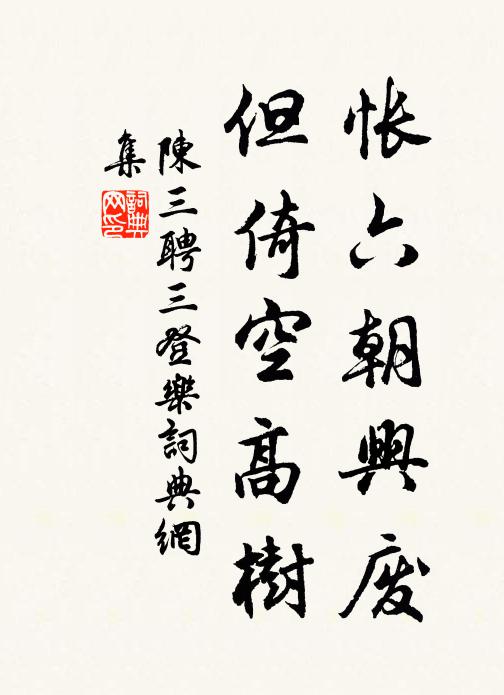 悵六朝興廢
但倚空高樹
陳三聘三登樂詞典網
集
詞典
网印